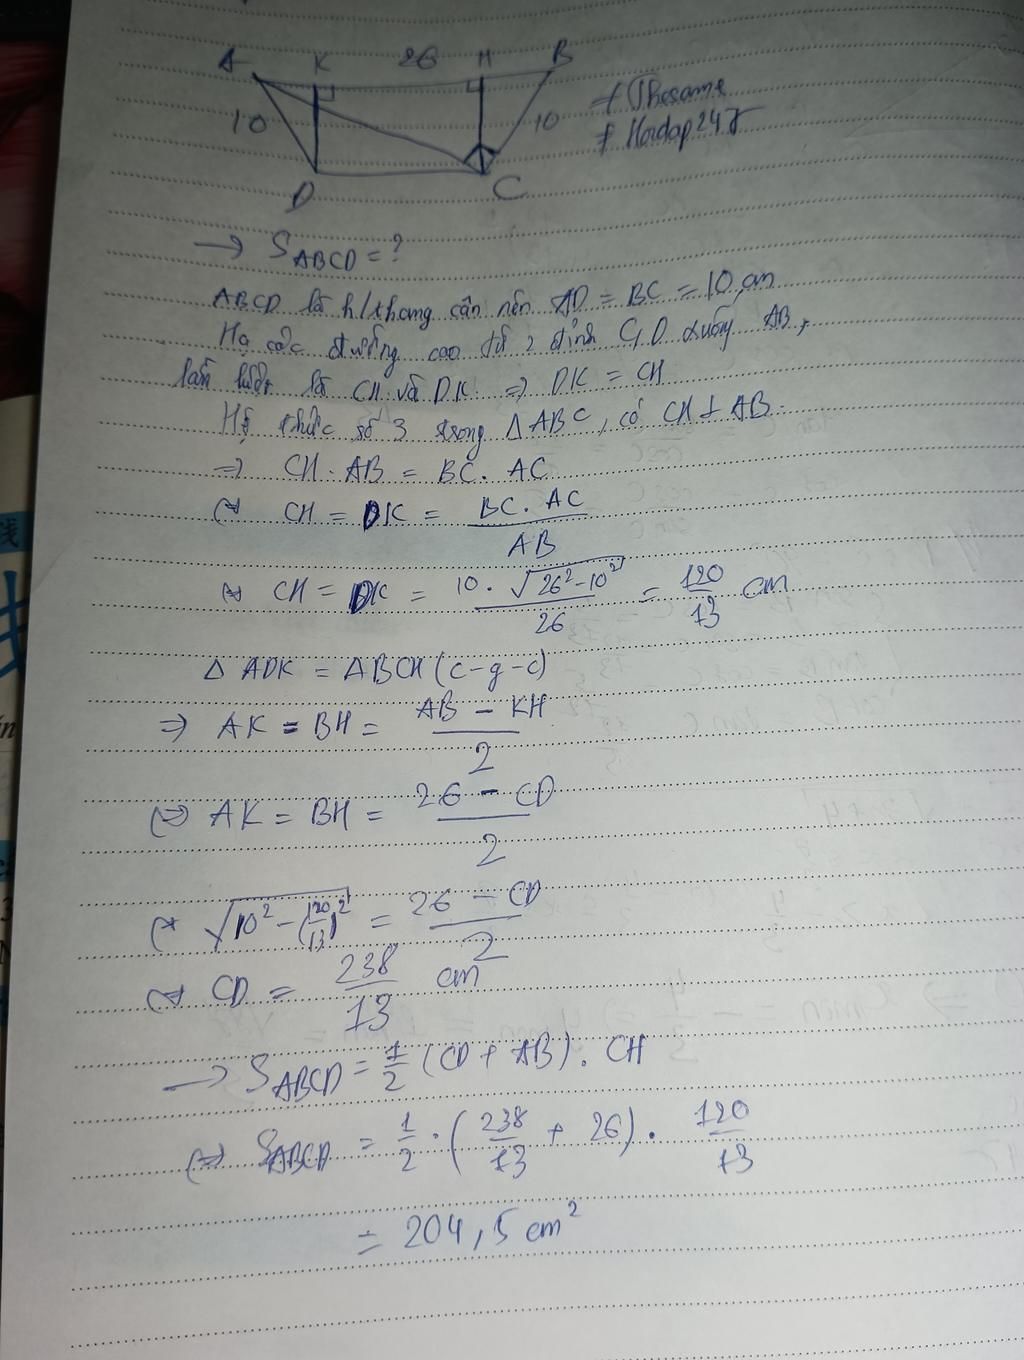 A K 26 H B
10 10
D C
+ Thosame
+ Hoidap247
→ S_ABCD = ?
ABCD là h/thang cân nên AD = BC = 10 cm
Hạ các đường cao từ 2 đỉnh C, D xuống AB,
lần lượt là CH và DK ⇒ DK = CH
Hệ thức số 3 trong Δ ABC, có CH ⊥ AB.
⇒ CH . AB = BC . AC
⇔ CH = DK = BC . AC / AB
⇔ CH = DK = 10 . √(26² - 10²) / 26 = 120/13 cm
Δ ADK = Δ BCH (c - g - c)
⇒ AK = BH = (AB - KH) / 2
⇔ AK = BH = (26 - CD) / 2
⇔ √(10² - (120/13)²) = (26 - CD) / 2
⇔ CD = 238/13 cm
→ S_ABCD = 1/2 (CD + AB) . CH
⇔ S_ABCD = 1/2 . (238/13 + 26) . 120/13
= 204,5 cm²